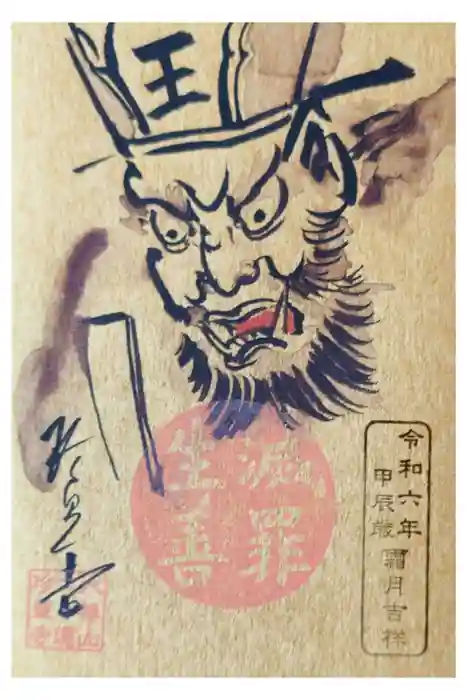 王
滅罪
生善
令和六年
甲辰歳
霜月吉祥